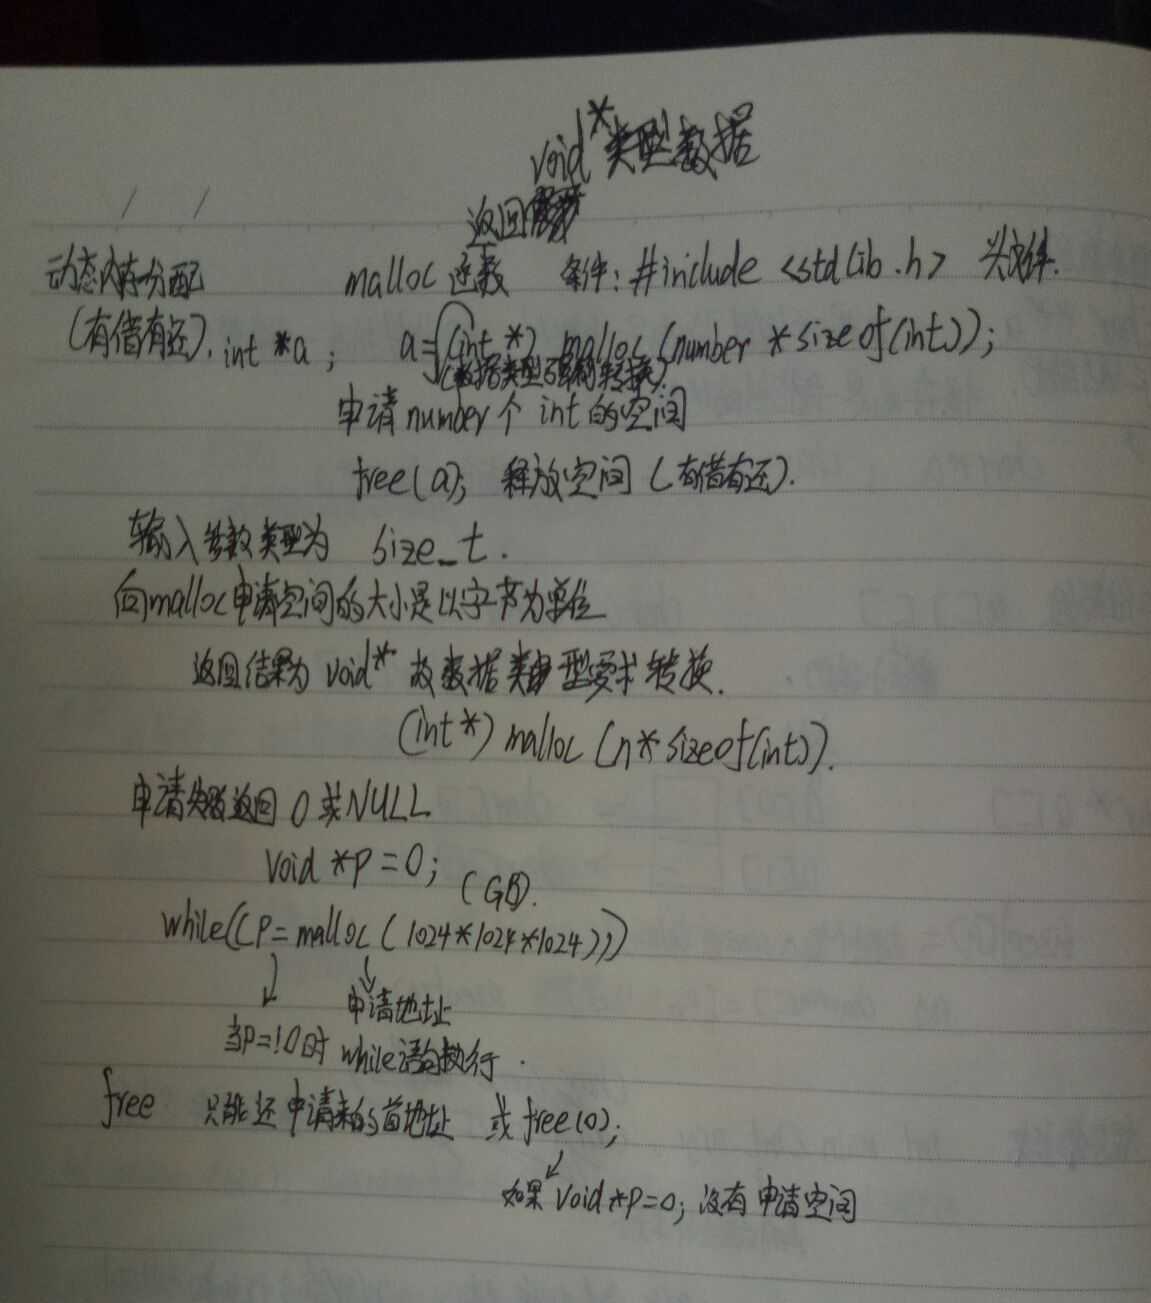 void* 类型数据
返回
动态内存分配 malloc 函数 条件: #include <stdlib.h> 头文件.
(有借有还). int *a; a=(int *) malloc (number *sizeof(int));
(数据类型强制转换).
申请 number 个 int 的空间
free(a); 释放空间 (有借有还).
输入参数类型为 size_t.
向malloc申请空间的大小是以字节为单位
返回结果为 void* 故数据类型要求转换.
(int*) malloc (n*sizeof(int)).
申请失败返回 0 或 NULL
void *p=0;
(GB).
while((p=malloc (1024*1024*1024)))
申请地址
当p=!0时 while语句执行.
free 只能还申请来的首地址 或 free(0);
如果 void *p=0; 没有申请空间